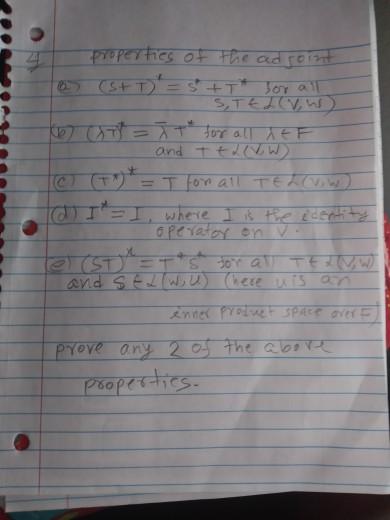 4 properties of the adjoint
a) (S+T)* = S* + T* for all
S, T ∈ L(V, W)
(b) (λT)* = λ̄ T* for all λ ∈ F
and T ∈ L(V, W)
(c) (T*)* = T for all T ∈ L(V, W)
(d) I* = I, where I is the identity
operator on V.
(e) (ST)* = T* S* for all T ∈ L(V, W)
and S ∈ L(W, U) (here U is an
inner product space over F)
prove any 2 of the above
properties.